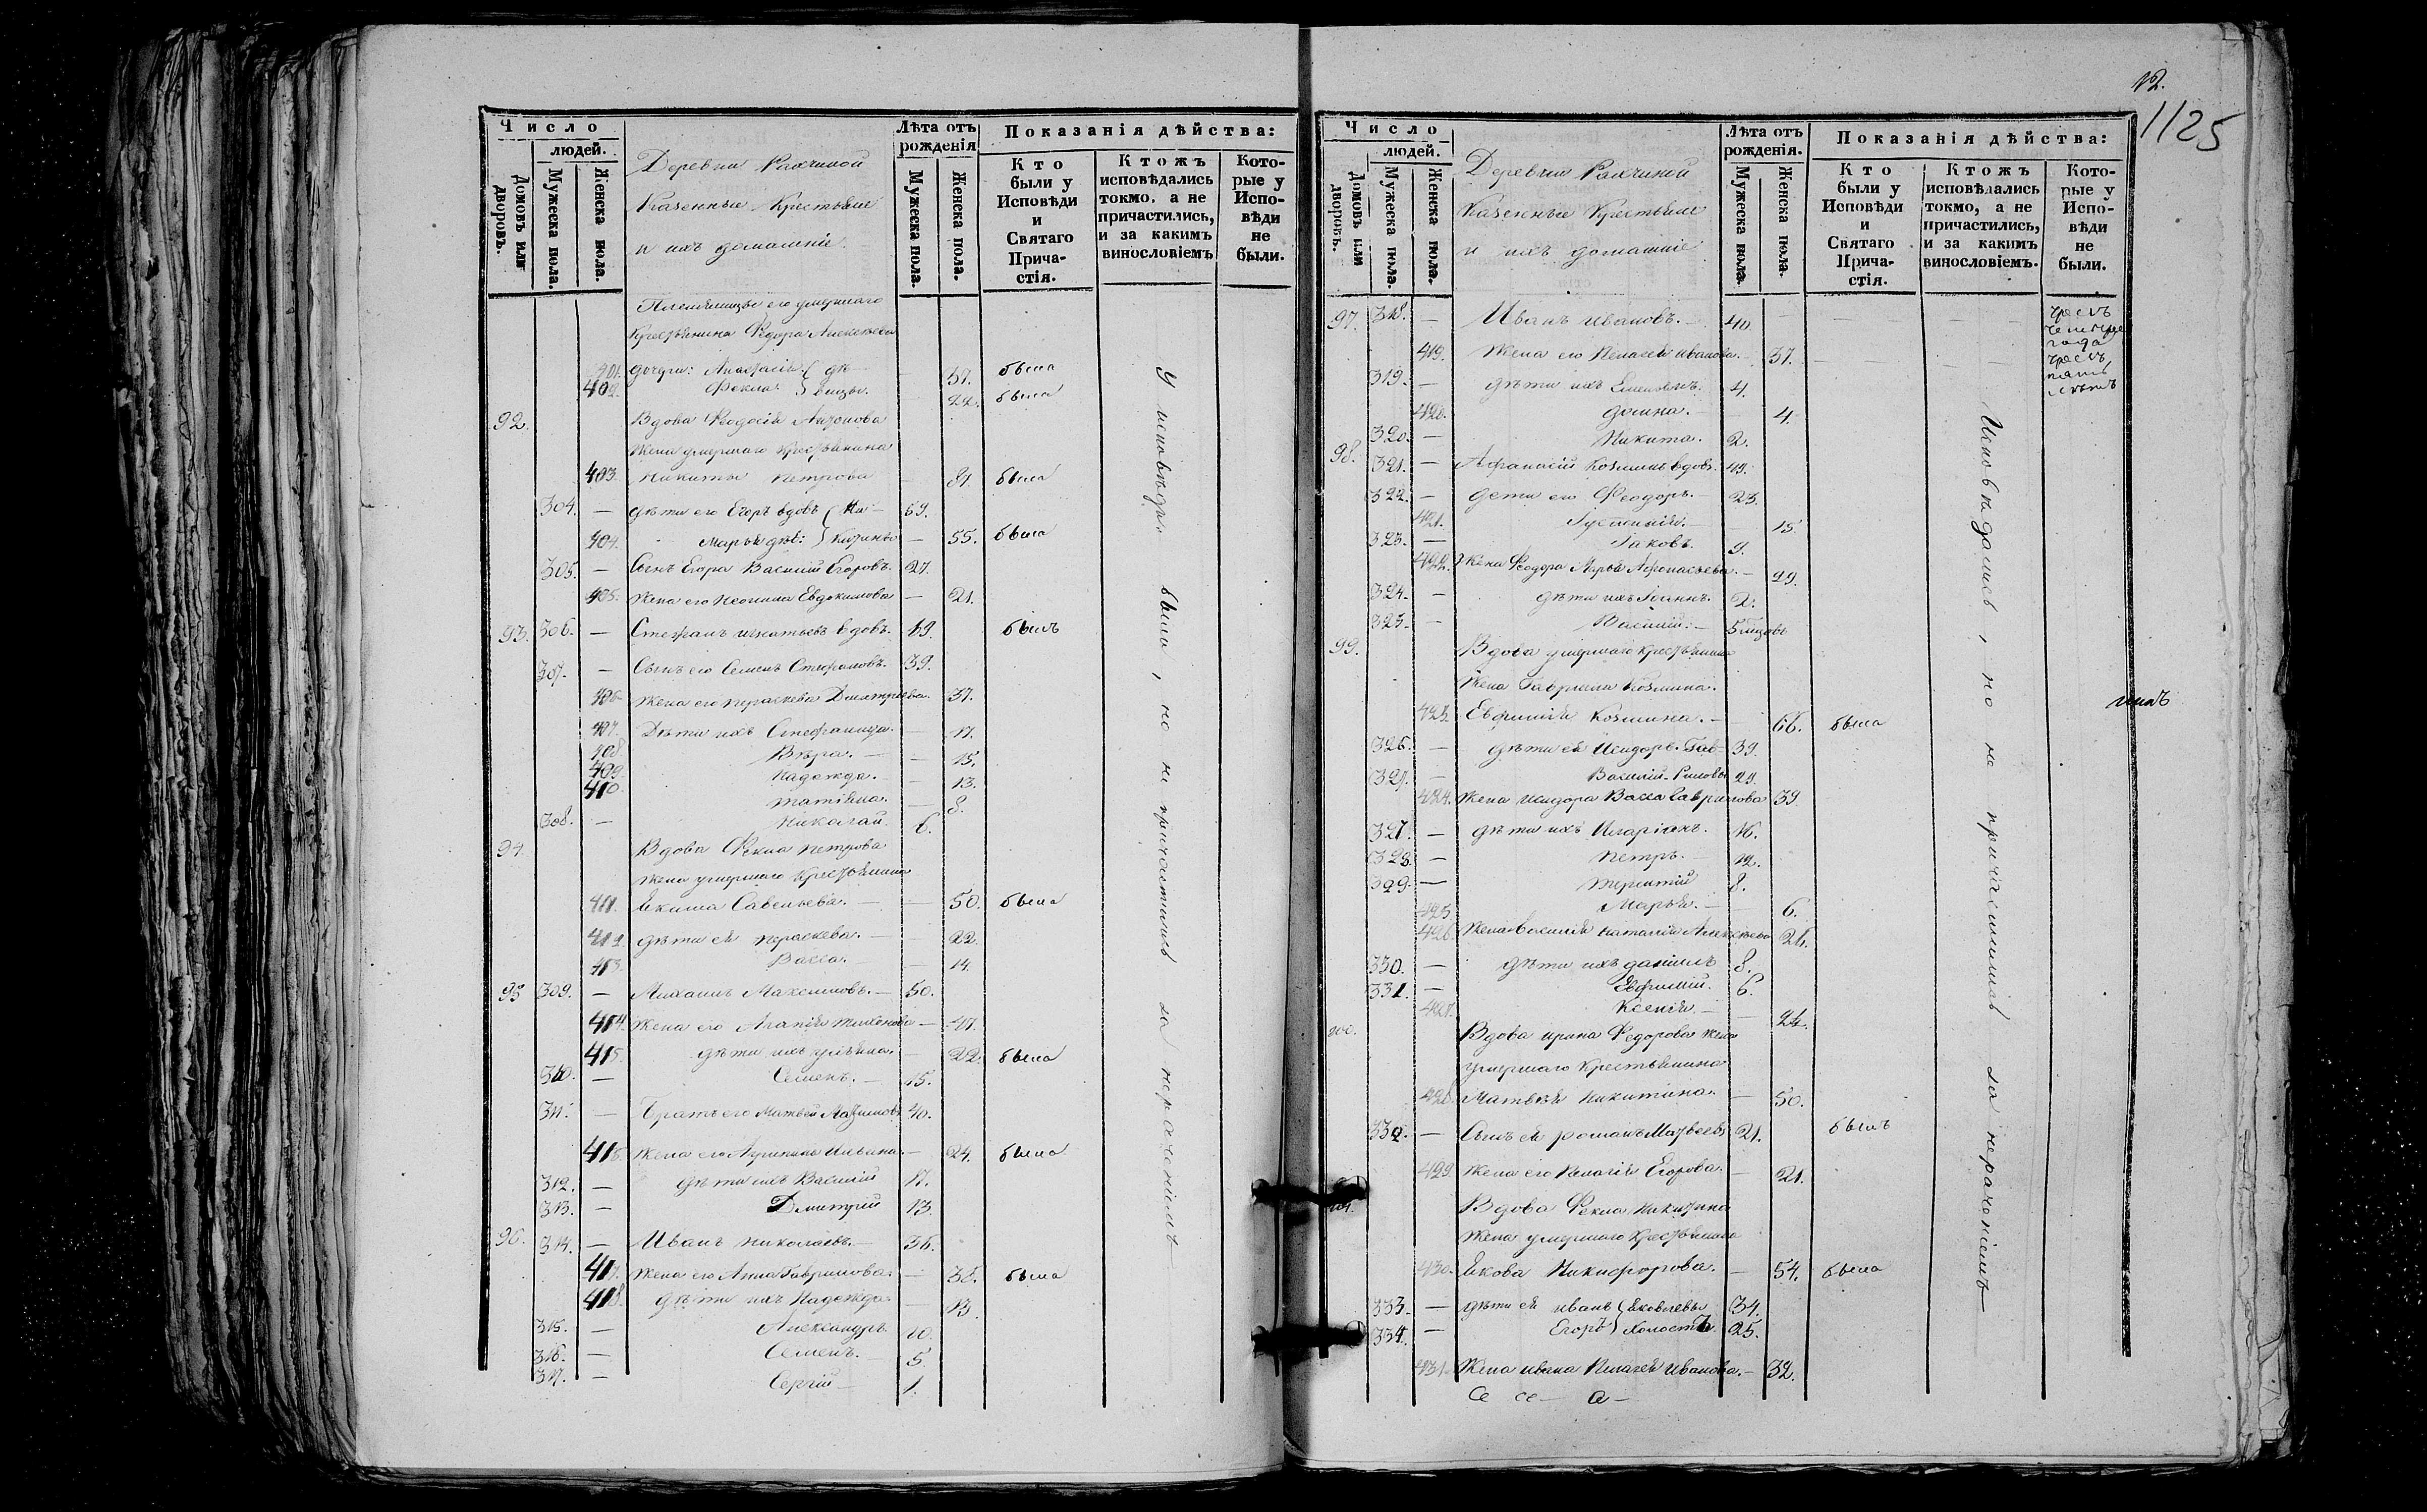 Число
людей.
Домовъ или дворовъ.
Мужеска пола.
Женска пола.
Деревни
Казенные Крестьяне
и ихъ домашніе
Лѣта отъ рожденія
Мужеска пола.
Женска пола.
Показанія дѣйства:
Кто были у Исповѣди и Святаго Прича-стія.
Ктожъ исповѣдались токмо, а не причастились, и за какимъ винословіемъ
Кото-рые у Испо-вѣди не были.
Племянницы его умершаго
Крестьянина Федора Алексѣева
401. дочери: Анастасія — 37. была
402. Фекла — 22. была
92. Вдова Феодосія Антонова
жена умершаго Крестьянина
403. Никиты Петрова — 81. была
304. — дѣти его Егоръ вдовъ 59.
404. Марья — 55. была
305. — Сынъ Егора Василій Егоровъ. 27.
405. Жена его Неонила Евдокимова — 21.
93. 306. — Стефанъ Игнатьевъ вдовъ. 69. былъ
307. — Сынъ его Семенъ Стефановъ. 39.
406. Жена его Параскева Димитріева. 37.
407. Дѣти ихъ Стефанида. — 17.
408. Вѣра. — 15.
409. Надежда. — 13.
410. Татіяна. — 8.
308. — Николай. 6.
94. Вдова Фекла Петрова
жена умершаго Крестьянина
411. Якима Савельева. — 50. была
412. дѣти ея Параскева. — 22.
413. Васса. — 14.
95. 309. — Михаилъ Максимовъ. — 50.
414. Жена его Агапія Тихонова — 47.
415. дѣти ихъ Ульяна. — 22. была
310. — Семенъ. — 15.
311. — Братъ его Матвей 40.
416. Жена его Акулина Ильина. — 24. была
312. — дѣти ихъ Василій 17.
313. — Дмитрій 13.
96. 314. — Иванъ Николаевъ. — 36.
417. Жена его Анна Гаврилова. — 38. была
418. дѣти ихъ Надежда. — 13.
315. — Александръ 10.
316. — Семенъ. 5.
317. — Сергій — 1.
У исповѣди были, но не причастились за нераченіемъ
12.
1125
Число
людей.
Домовъ или дворовъ.
Мужеска пола.
Женска пола.
Деревни
Казенные Крестьяне
и ихъ домашніе
Лѣта отъ рожденія.
Мужеска пола.
Женска пола.
Показанія дѣйства:
Кто были у Исповѣди и Святаго Прича-стія.
Ктожъ исповѣдались токмо, а не причастились, и за какимъ винословіемъ.
Кото-рые у Испо-вѣди не были.
97. 318. — Иванъ Ивановъ. — 40.
419. Жена его Пелагея Иванова. — 37.
319. — дѣти ихъ 4.
420. Домна. — 4.
320. — Никита. 2.
98. 321. — Афанасій Козминъ вдовъ. 49.
322. — дети его Феодоръ. — 23.
421. — 15.
323. — Іаковъ. 9.
422. Жена Феодора Марья Афонасьева. — 22.
324. — дѣти ихъ Іоаннъ. 2.
325. — Василій. — 5 мцовъ
99. Вдова умершаго Крестьянина
жена Гавріила Козмина.
423. Евфимія Козмина. — 66. была
326. — дѣти ея Исидоръ. Гав- 39.
327. — Василій риловы 29.
424. Жена Исидора Васса Гаврилова 39.
327. — дѣти ихъ Иларіонъ. 16.
328. — Петръ. — 12.
329. — Терентій 8.
425. Марья. — 6.
426. Жена Василія Наталія Алексѣева 26.
330. — дѣти ихъ Даніилъ 8.
331. — Евфимій. 6.
427. Ксенія. —
100. Вдова Ирина Федорова жена
умершаго Крестьянина
428. Матвѣя Никитина. — 50.
332. — Сынъ ея Романъ Матвеевъ 21. былъ
429. Жена его Пелагія Егорова. — 21.
101. Вдова Фекла Никитина
жена умершаго Крестьянина
430. Якова Никифорова. — 54. была
333. — дѣти ея Иванъ Яковлевы 34.
334. — Егоръ холостъ. 25.
431. Жена Ивана Пелагея Иванова. — 32.
Исповѣдались, но не причастились за нераченіемъ